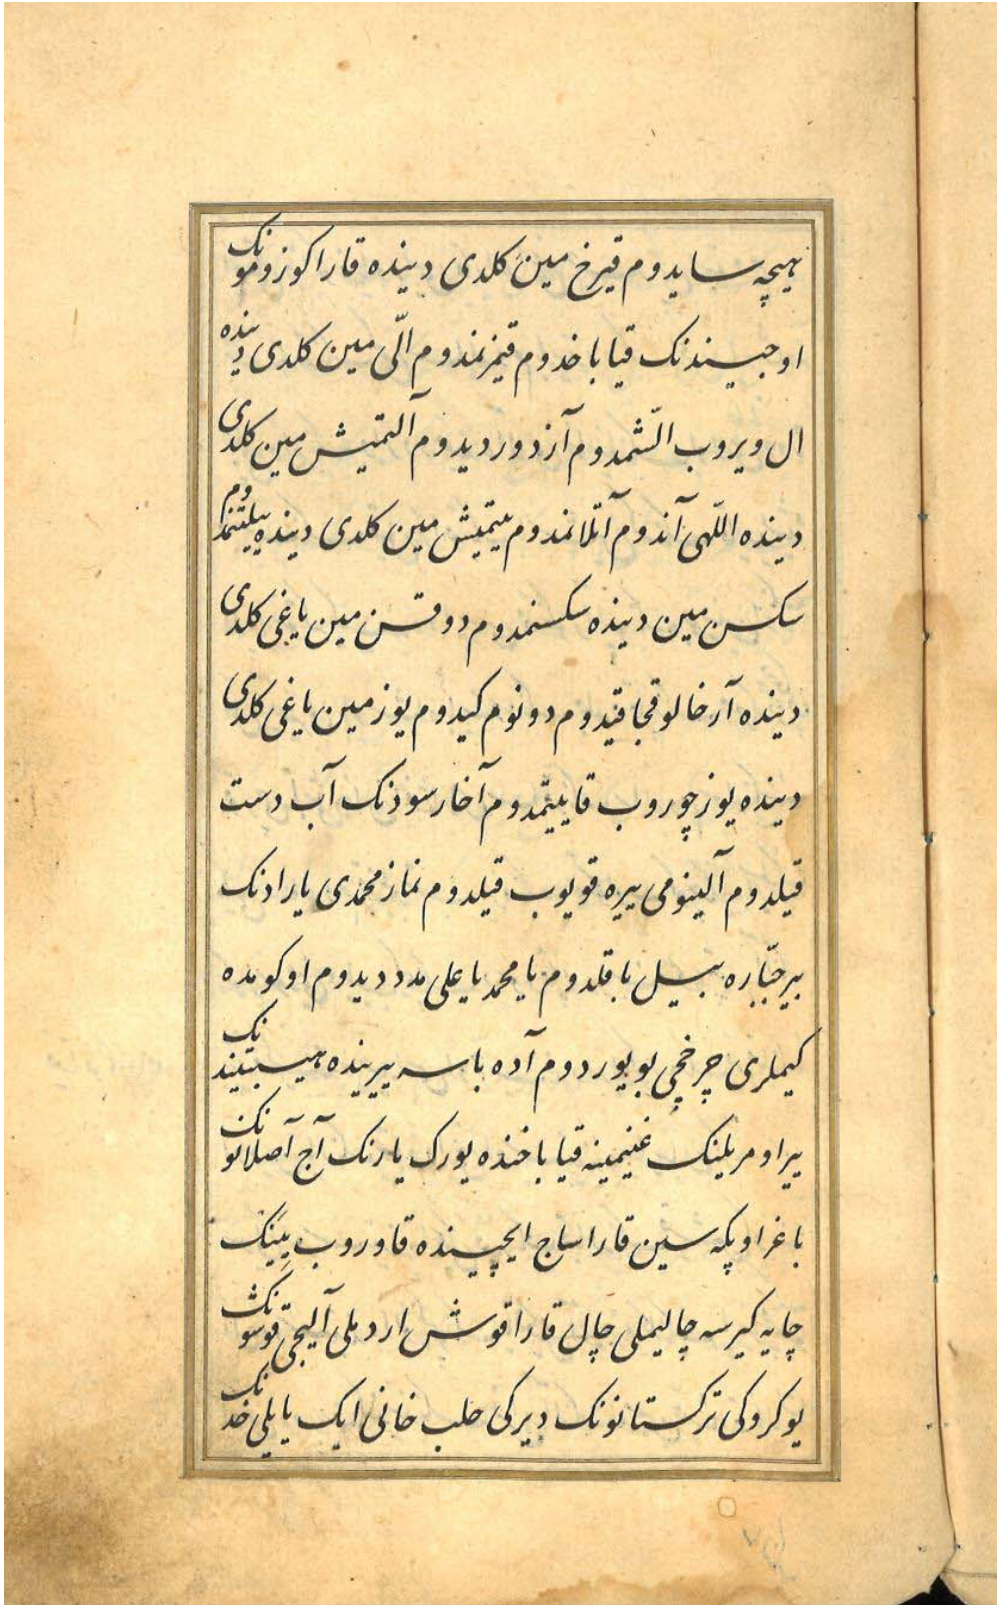 هیچه سایدوم قیرخ مین کلدی دینده قارا کوزومونک
اوجیسندنک قیا باخدوم قیمزنمدوم الّی مین کلدی دینده
ال ویروب الّشمدوم آز دور دیدوم آلتمیش مین کلدی
دینده اللهی آندوم آتلانمدوم یتمیش مین کلدی دینده ییلتنمدوم
سکسن مین دینده سکسنمدوم دوقسن مین یاغی کلدی
دینده آرخالو قجا قیدوم دونوم کیدوم یوز مین یاغی کلدی
دینده یوز چوروب قاییتمدوم آخار سودنک آب دست
قیلدوم آلینومی ییره قویوب قیلدوم نماز محمدی یارادنک
بیر جبّاره بیل باقلدوم یا محمد یا علی مدد دیدوم اوکومده
کیملری چرخچی بویوردوم آده باسه ییرینده هیبتیندنک
بیر اومریلینک غنیمینه قیا باخنده یورک یارنک آج آصلانونک
باغر اوپکه سین قارا ساج ایچینده قاوروب ییینک
چایه کیرسه چالیملی چال قارا قوش اردملی آلیجی قوشونک
یوکروکی ترکستانونک دیرکی حلب خانی ایک یایلی خدنک